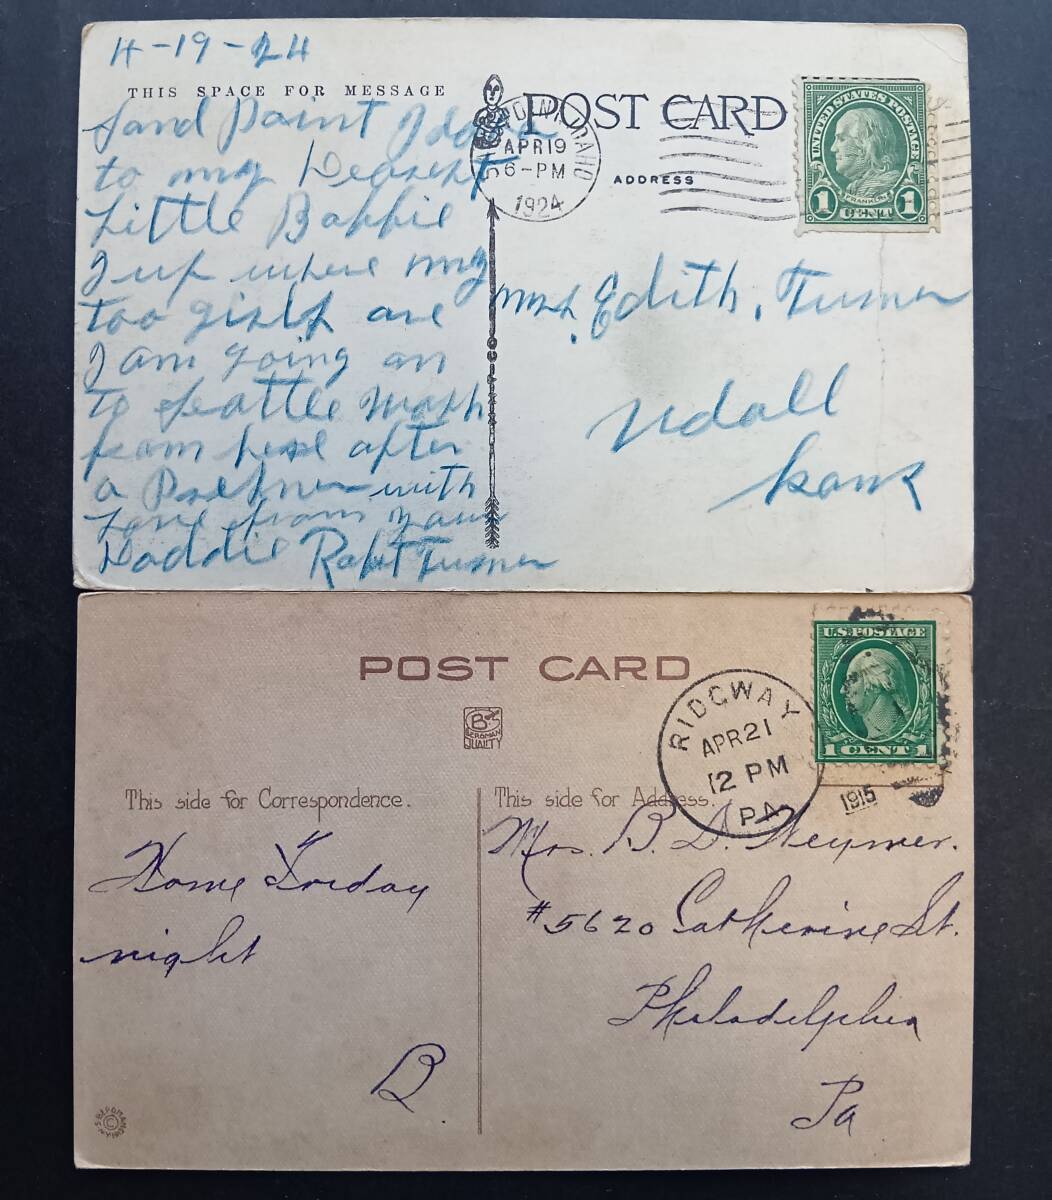 4-19-24
THIS SPACE FOR MESSAGE
POST CARD
ADDRESS
IDAHO
APR 19
6-PM
1924
UNITED STATES POSTAGE
FRANKLIN
1 CENT 1
Sand Point Idaho
to my Dearest
Little Babbie
I up where my
too girls are
I am going on
To Seattle Wash
from here after
a Partner with
Love from your
Daddie Robt Turner
Mrs. Edith. Turner
Udall
Kans
POST CARD
BERGMAN
QUALITY
RIDGWAY
APR 21
12 PM
PA
1915
U.S. POSTAGE
1 CENT 1
This side for Correspondence.
This side for Address.
Home Friday
night
B
Mrs. B. D. Weymer.
#5620 Catherine St.
Philadelphia
Pa